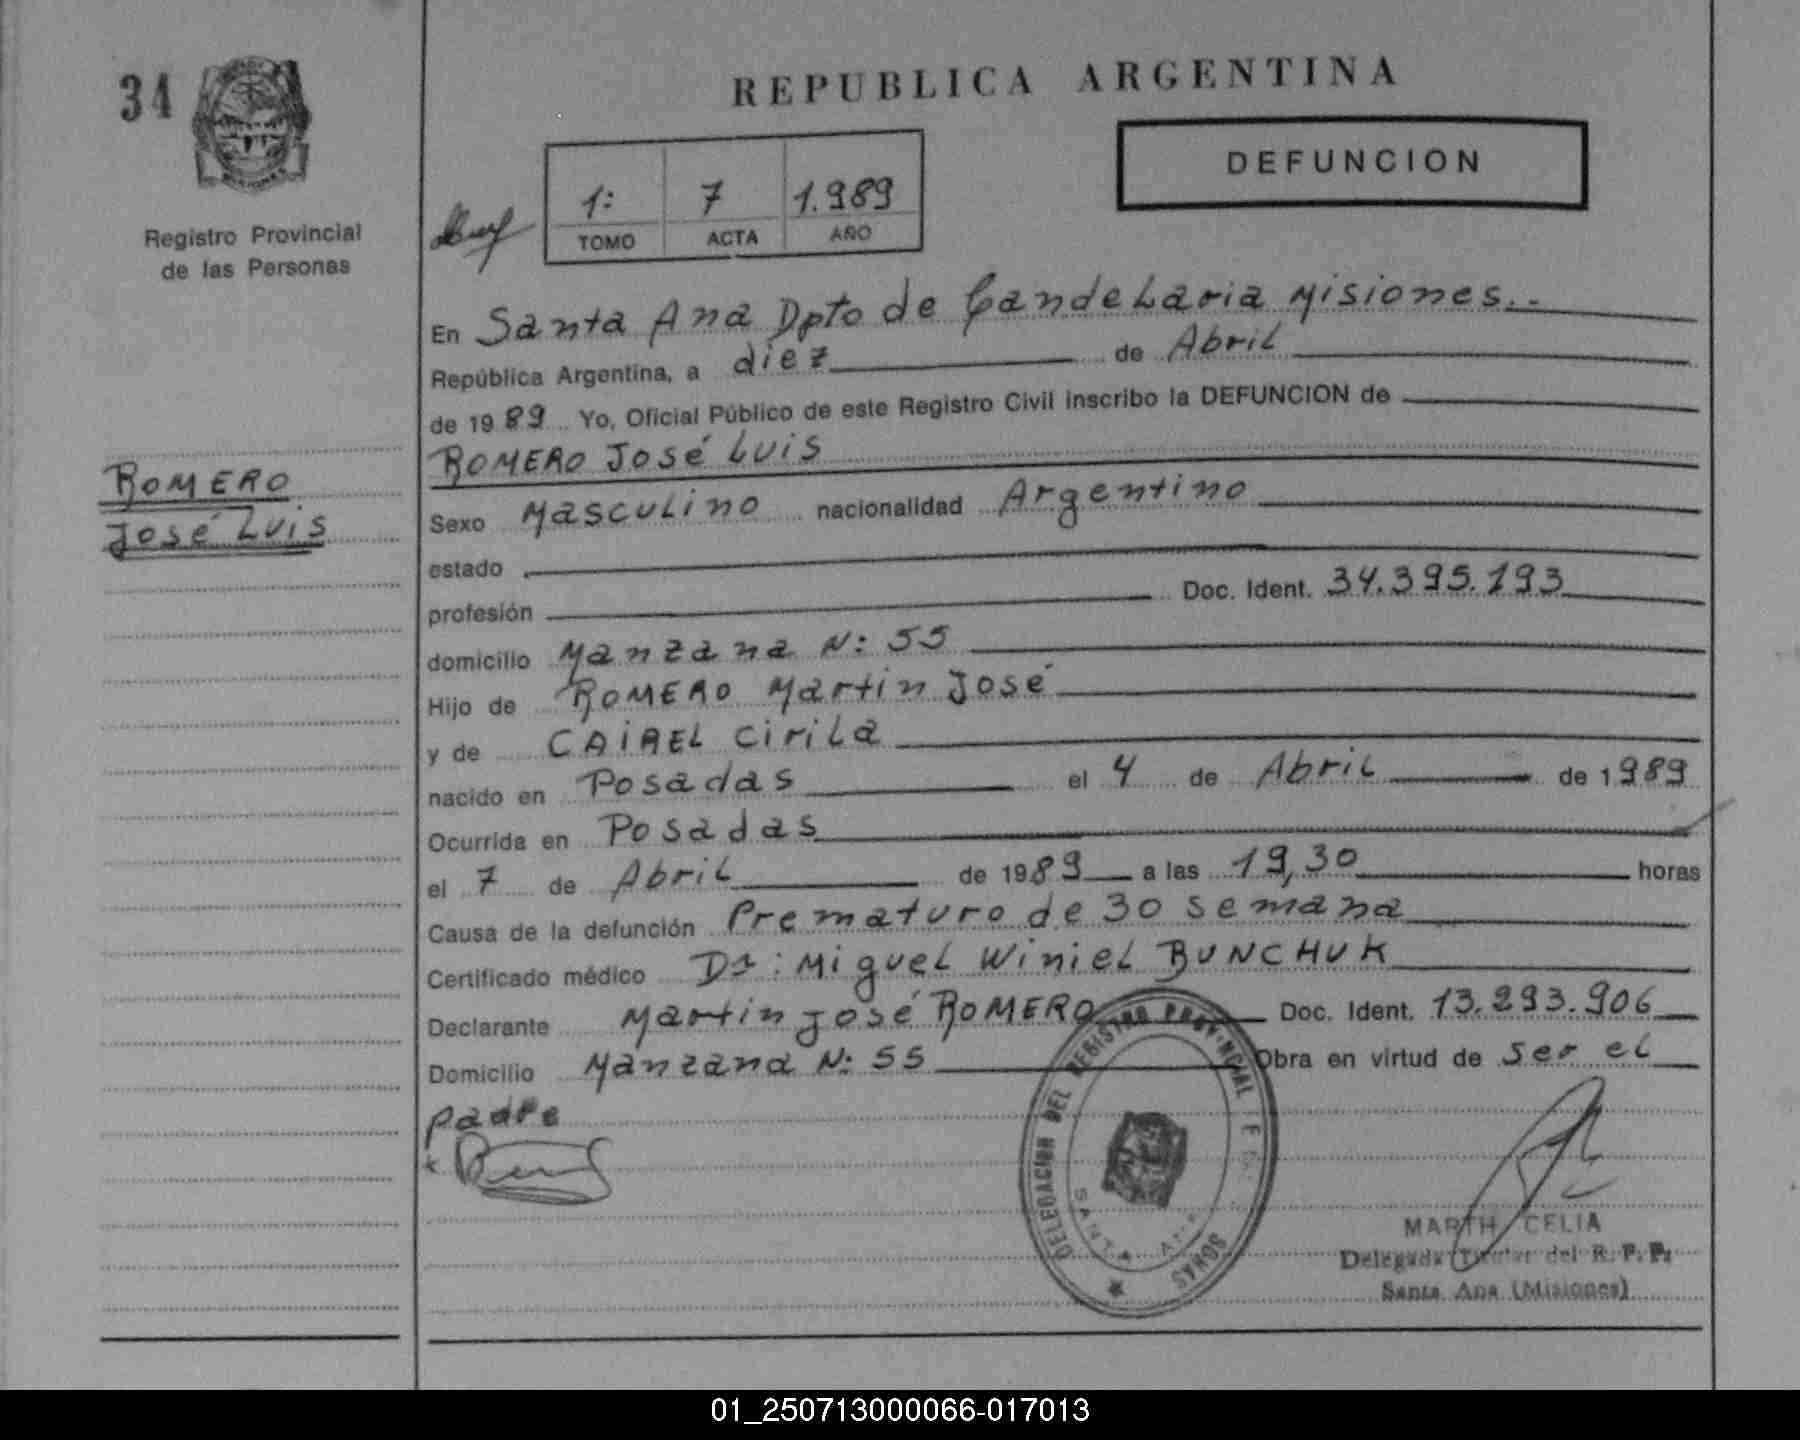 34
Registro Provincial
de las Personas
REPUBLICA ARGENTINA
DEFUNCION
1: 7 1.989
TOMO ACTA AÑO
En Santa Ana Dpto de Candelaria Misiones..
República Argentina, a diez de Abril
de 1989 Yo, Oficial Público de este Registro Civil inscribo la DEFUNCION de
ROMERO José Luis
ROMERO
José Luis
Sexo Masculino nacionalidad Argentino
estado
profesión Doc. Ident. 34.395.193
domicilio Manzana N: 55
Hijo de ROMERO Martin José
y de CAIREL Cirila
nacido en Posadas el 4 de Abril de 1989
Ocurrida en Posadas
el 7 de Abril de 1989 a las 19,30 horas
Causa de la defunción Prematuro de 30 semana
Certificado médico Dr: Miguel Winiel BUNCHUK
Declarante Martin José ROMERO Doc. Ident. 13.293.906
Domicilio Manzana N: 55 Obra en virtud de ser el
padre
DELEGACION DEL REGISTRO PROVINCIAL
SANTA ANA
MARTH CELIA
Delegada Titular del R. P. P.
Santa Ana (Misiones)
01_250713000066-017013